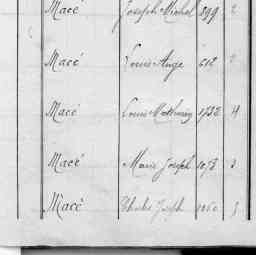 Macé Joseph Michel 899 2
Macé Louis Ange 612
Macé Louis Mathurin 1732 4
Macé Marie Joseph 1073 3
Macé Charles Joseph 3